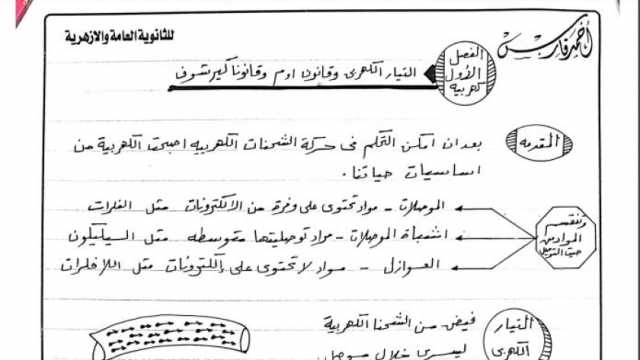 للثانوية العامة والازهرية
أحمد فارس
الفصل الأول كهربية
التيار الكهربى وقانون اوم وقانونا كيرشوف
المقدمه
بعد ان امكن التحكم فى حركة الشحنات الكهربيه اصبحت الكهربية من
اساسيات حياتنا.
وتنقسم المواد من حيث التوصيل
الموصلات - مواد تحتوى على وفرة من الالكترونات مثل الفلزات
اشباة الموصلات - مواد توصليتها متوسطه مثل السيليكون
العوازل - مواد لا تحتوى على إلكترونات مثل اللافلزات
التيار الكهربى
فيض من الشحنا الكهربية
ليسرى خلال موصل